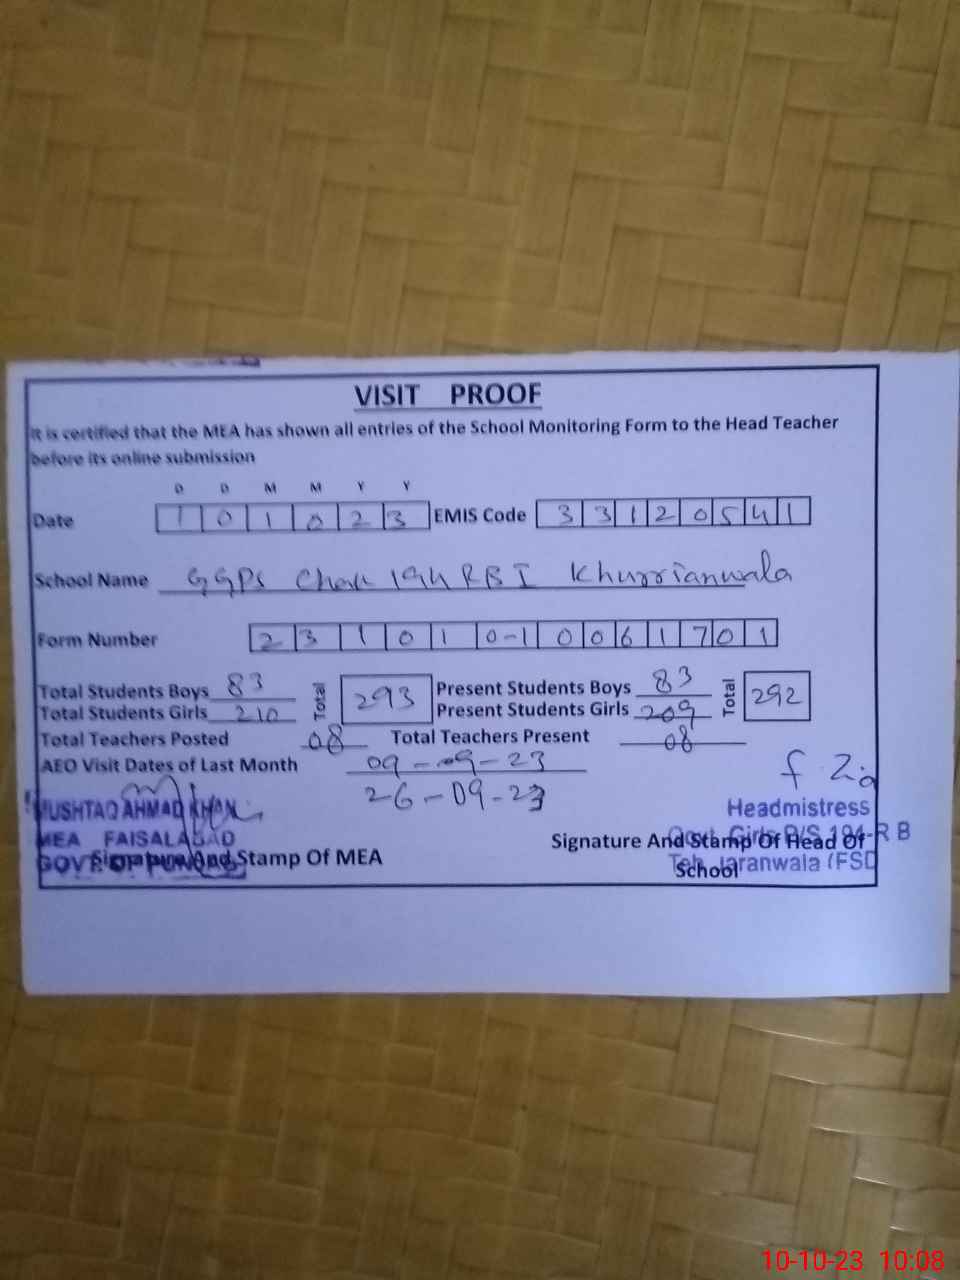 VISIT PROOF
It is certified that the MEA has shown all entries of the School Monitoring Form to the Head Teacher
before its online submission
D D M M Y Y
Date 1 0 1 0 2 3 EMIS Code 3 3 1 2 0 5 4 1
School Name GGPS Chak 194 RB I Khurrianwala
Form Number 2 3 1 0 1 0-1 0 0 6 1 7 0 1
Total Students Boys 83 Total 293 Present Students Boys 83 Total 292
Total Students Girls 210 Present Students Girls 209
Total Teachers Posted 08 Total Teachers Present 08
AEO Visit Dates of Last Month 09-09-23
26-09-23
MUSHTAQ AHMAD KHAN
MEA FAISALABAD
GOVT. OF PUNJAB
Signature And Stamp Of MEA
Headmistress
Govt. Girls P/S 194-R B
Teh. Jaranwala (FSD
Signature And Stamp Of Head Of
School
10-10-23 10:08